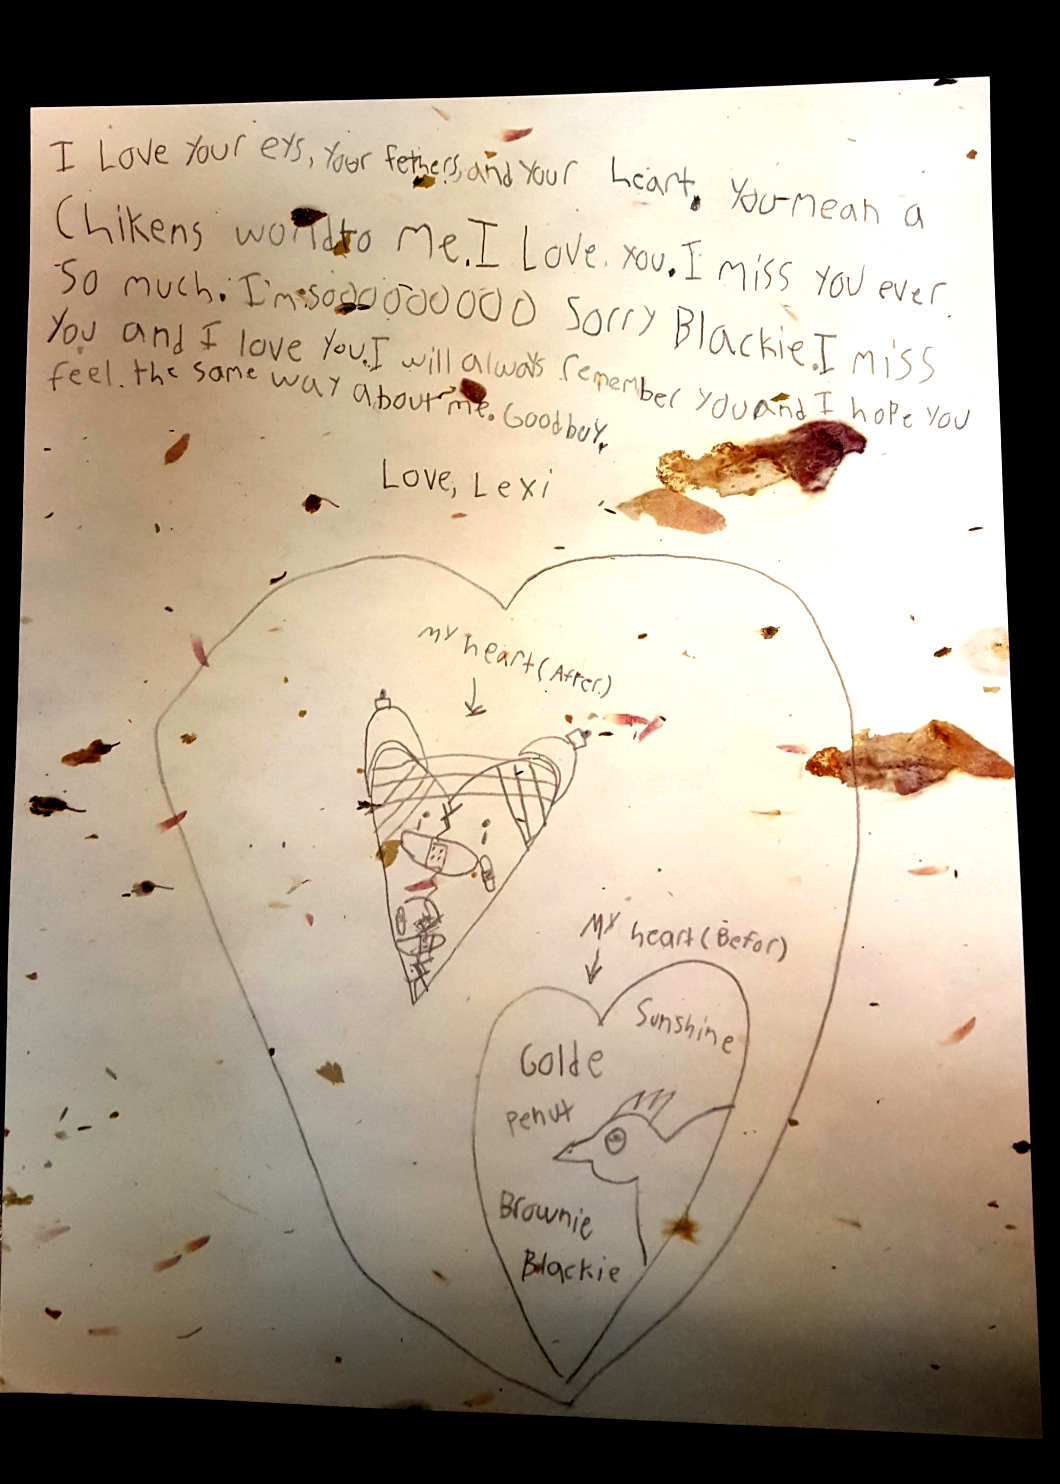 I Love Your eys, Your fethers, and Your heart. You mean a
Chikens world to me. I Love you. I miss you ever
so much. I'm soooooooooo Sorry Blackie. I miss
You and I love You. I will always remember you and I hope you
feel the same way about me. Goodbuy.
Love, Lexi
My heart (After)
My heart (Befor)
Sunshine
Golde
Penut
Brownie
Blackie